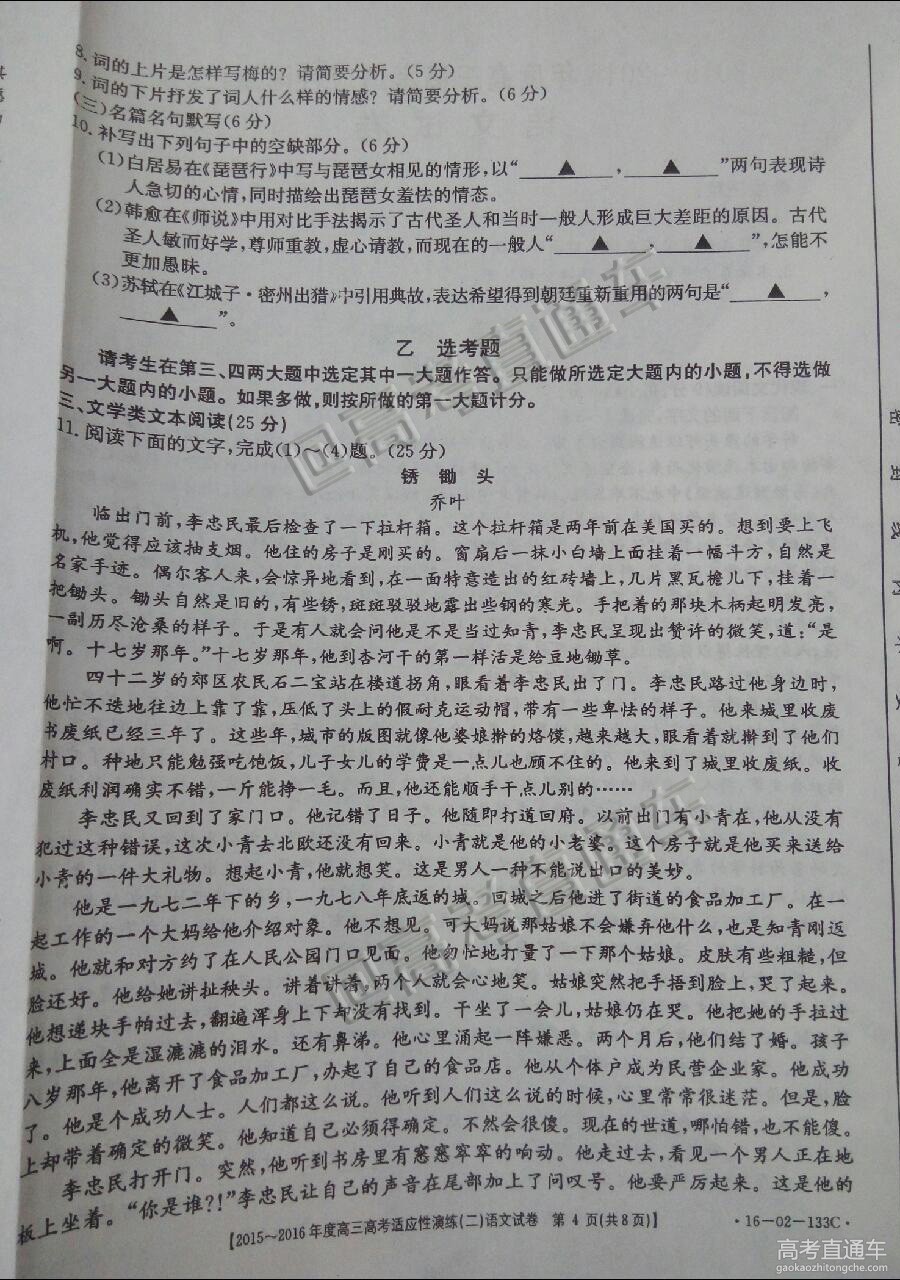 8. 词的上片是怎样写梅的？请简要分析。(5分)
9. 词的下片抒发了词人什么样的情感？请简要分析。(6分)
(三)名篇名句默写(6分)
10. 补写出下列句子中的空缺部分。(6分)
(1)白居易在《琵琶行》中写与琵琶女相见的情形，以“▲，▲”两句表现诗
人急切的心情，同时描绘出琵琶女羞怯的情态。
(2)韩愈在《师说》中用对比手法揭示了古代圣人和当时一般人形成巨大差距的原因。古代
圣人敏而好学，尊师重教，虚心请教，而现在的一般人“▲，▲”，怎能不
更加愚昧。
(3)苏轼在《江城子·密州出猎》中引用典故，表达希望得到朝廷重新重用的两句是“▲，
▲”。
乙 选考题
请考生在第三、四两大题中选定其中一大题作答。只能做所选定大题内的小题，不得选做
另一大题内的小题。如果多做，则按所做的第一大题计分。
三、文学类文本阅读(25分)
11. 阅读下面的文字，完成(1)～(4)题。(25分)
锈锄头
乔叶
临出门前，李忠民最后检查了一下拉杆箱。这个拉杆箱是两年前在美国买的。想到要上飞
机，他觉得应该抽支烟。他住的房子是刚买的。窗扇后一抹小白墙上面挂着一幅斗方，自然是
名家手迹。偶尔客人来，会惊异地看到，在一面特意造出的红砖墙上，几片黑瓦檐儿下，挂着一
把锄头。锄头自然是旧的，有些锈，斑斑驳驳地露出些钢的寒光。手把着的那块木柄起明发亮，
一副历尽沧桑的样子。于是有人就会问他是不是当过知青，李忠民呈现出赞许的微笑，道：“是
啊。十七岁那年。”十七岁那年，他到杏河干的第一样活是给豆地锄草。
四十二岁的郊区农民石二宝站在楼道拐角，眼看着李忠民出了门。李忠民路过他身边时，
他忙不迭地往边上靠了靠，压低了头上的假耐克运动帽，带有一些卑怯的样子。他来城里收废
书废纸已经三年了。这些年，城市的版图就像他婆娘擀的烙馍，越来越大，眼看着就擀到了他们
村口。种地只能勉强吃饱饭，儿子女儿的学费是一点儿也顾不住的。他来到了城里收废纸。收
废纸利润确实不错，一斤能挣一毛。而且，他还能顺手干点儿别的……
李忠民又回到了家门口。他记错了日子。他随即打道回府。以前出门有小青在，他从没有
犯过这种错误，这次小青去北欧还没有回来。小青就是他的小老婆。这个房子就是他买来送给
小青的一件大礼物。想起小青，他就想笑。这是男人一种不能说出口的美妙。
他是一九七二年下的乡，一九七八年底返的城。回城之后他进了街道的食品加工厂。在一
起工作的一个大妈给他介绍对象。他不想见。可大妈说那姑娘不会嫌弃他什么，也是知青刚返
城。他就和对方约了在人民公园门口见面。他匆忙地打量了一下那个姑娘。皮肤有些粗糙，但
脸还好。他给她讲扯秧头。讲着讲着，两个人就会心地笑。姑娘突然把手捂到脸上，哭了起来。
他想递块手帕过去，翻遍浑身上下却没有找到。干坐了一会儿，姑娘仍在哭。他把她的手拉过
来，上面全是湿漉漉的泪水。还有鼻涕。他心里涌起一阵嫌恶。两个月后，他们结了婚。孩子
八岁那年，他离开了食品加工厂，办起了自己的食品店。他从个体户成为民营企业家。他成功
了。他是个成功人士。人们都这么说。他听到人们这么说的时候，心里常常很迷茫。但是，脸
上却带着确定的微笑。他知道自己必须得确定。不然会很傻。现在的世道，哪怕错，也不能傻。
李忠民打开门。突然，他听到书房里有窸窸窣窣的响动。他走过去，看见一个男人正在地
板上坐着。“你是谁？！”李忠民让自己的声音在尾部加上了问叹号。他要严厉起来。这是他的
【2015～2016年度高三高考适应性演练(二)语文试卷 第4页(共8页)】
·16-02-133C·
@高考直通车
@高考直通车
高考直通车
gaokaozhitongche.com